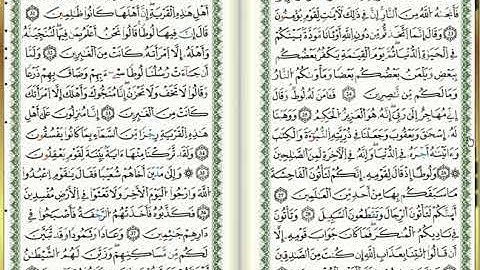 فَأَنجَىٰهُ ٱللَّهُ مِنَ ٱلنَّارِ إِنَّ فِى ذَٰلِكَ لَءَايَٰتٍ لِّقَوْمٍ يُؤْمِنُونَ
٢٤ وَقَالَ إِنَّمَا ٱتَّخَذْتُم مِّن دُونِ ٱللَّهِ أَوْثَٰنًا مَّوَدَّةَ بَيْنِكُمْ
فِى ٱلْحَيَوٰةِ ٱلدُّنْيَا ثُمَّ يَوْمَ ٱلْقِيَٰمَةِ يَكْفُرُ بَعْضُكُم
بِبَعْضٍ وَيَلْعَنُ بَعْضُكُم بَعْضًا وَمَأْوَىٰكُمُ ٱلنَّارُ
وَمَا لَكُم مِّن نَّٰصِرِينَ ٢٥ فَـَٔامَنَ لَهُۥ لُوطٌ وَقَالَ
إِنِّى مُهَاجِرٌ إِلَىٰ رَبِّىٓ إِنَّهُۥ هُوَ ٱلْعَزِيزُ ٱلْحَكِيمُ ٢٦ وَوَهَبْنَا
لَهُۥٓ إِسْحَٰقَ وَيَعْقُوبَ وَجَعَلْنَا فِى ذُرِّيَّتِهِ ٱلنُّبُوَّةَ وَٱلْكِتَٰبَ
وَءَاتَيْنَٰهُ أَجْرَهُۥ فِى ٱلدُّنْيَا وَإِنَّهُۥ فِى ٱلْءَاخِرَةِ لَمِنَ ٱلصَّٰلِحِينَ
٢٧ وَلُوطًا إِذْ قَالَ لِقَوْمِهِۦٓ إِنَّكُمْ لَتَأْتُونَ ٱلْفَٰحِشَةَ
مَا سَبَقَكُم بِهَا مِنْ أَحَدٍ مِّنَ ٱلْعَٰلَمِينَ ٢٨
أَئِنَّكُمْ لَتَأْتُونَ ٱلرِّجَالَ وَتَقْطَعُونَ ٱلسَّبِيلَ وَتَأْتُونَ
فِى نَادِيكُمُ ٱلْمُنكَرَ فَمَا كَانَ جَوَابَ قَوْمِهِۦٓ إِلَّآ
أَن قَالُوا۟ ٱئْتِنَا بِعَذَابِ ٱللَّهِ إِن كُنتَ مِنَ ٱلصَّٰدِقِينَ
أَهْلِ هَٰذِهِ ٱلْقَرْيَةِ إِنَّ أَهْلَهَا كَانُوا۟ ظَٰلِمِينَ ٣١
قَالَ إِنَّ فِيهَا لُوطًا قَالُوا۟ نَحْنُ أَعْلَمُ بِمَن فِيهَا لَنُنَجِّيَنَّهُۥ
وَأَهْلَهُۥٓ إِلَّا ٱمْرَأَتَهُۥ كَانَتْ مِنَ ٱلْغَٰبِرِينَ ٣٢ وَلَمَّآ
أَن جَآءَتْ رُسُلُنَا لُوطًا سِىٓءَ بِهِمْ وَضَاقَ بِهِمْ ذَرْعًا
وَقَالُوا۟ لَا تَخَفْ وَلَا تَحْزَنْ إِنَّا مُنَجُّوكَ وَأَهْلَكَ إِلَّا ٱمْرَأَتَكَ
كَانَتْ مِنَ ٱلْغَٰبِرِينَ ٣٣ إِنَّا مُنزِلُونَ عَلَىٰٓ أَهْلِ
هَٰذِهِ ٱلْقَرْيَةِ رِجْزًا مِّنَ ٱلسَّمَآءِ بِمَا كَانُوا۟ يَفْسُقُونَ
٣٤ وَلَقَد تَّرَكْنَا مِنْهَآ ءَايَةًۢ بَيِّنَةً لِّقَوْمٍ يَعْقِلُونَ
٣٥ وَإِلَىٰ مَدْيَنَ أَخَاهُمْ شُعَيْبًا فَقَالَ يَٰقَوْمِ ٱعْبُدُوا۟
ٱللَّهَ وَٱرْجُوا۟ ٱلْيَوْمَ ٱلْءَاخِرَ وَلَا تَعْثَوْا۟ فِى ٱلْأَرْضِ مُفْسِدِينَ
٣٦ فَكَذَّبُوهُ فَأَخَذَتْهُمُ ٱلرَّجْفَةُ فَأَصْبَحُوا۟ فِى
دَارِهِمْ جَٰثِمِينَ ٣٧ وَعَادًا وَثَمُودَا۟ وَقَد تَّبَيَّنَ
لَكُم مِّن مَّسَٰكِنِهِمْ وَزَيَّنَ لَهُمُ ٱلشَّيْطَٰنُ